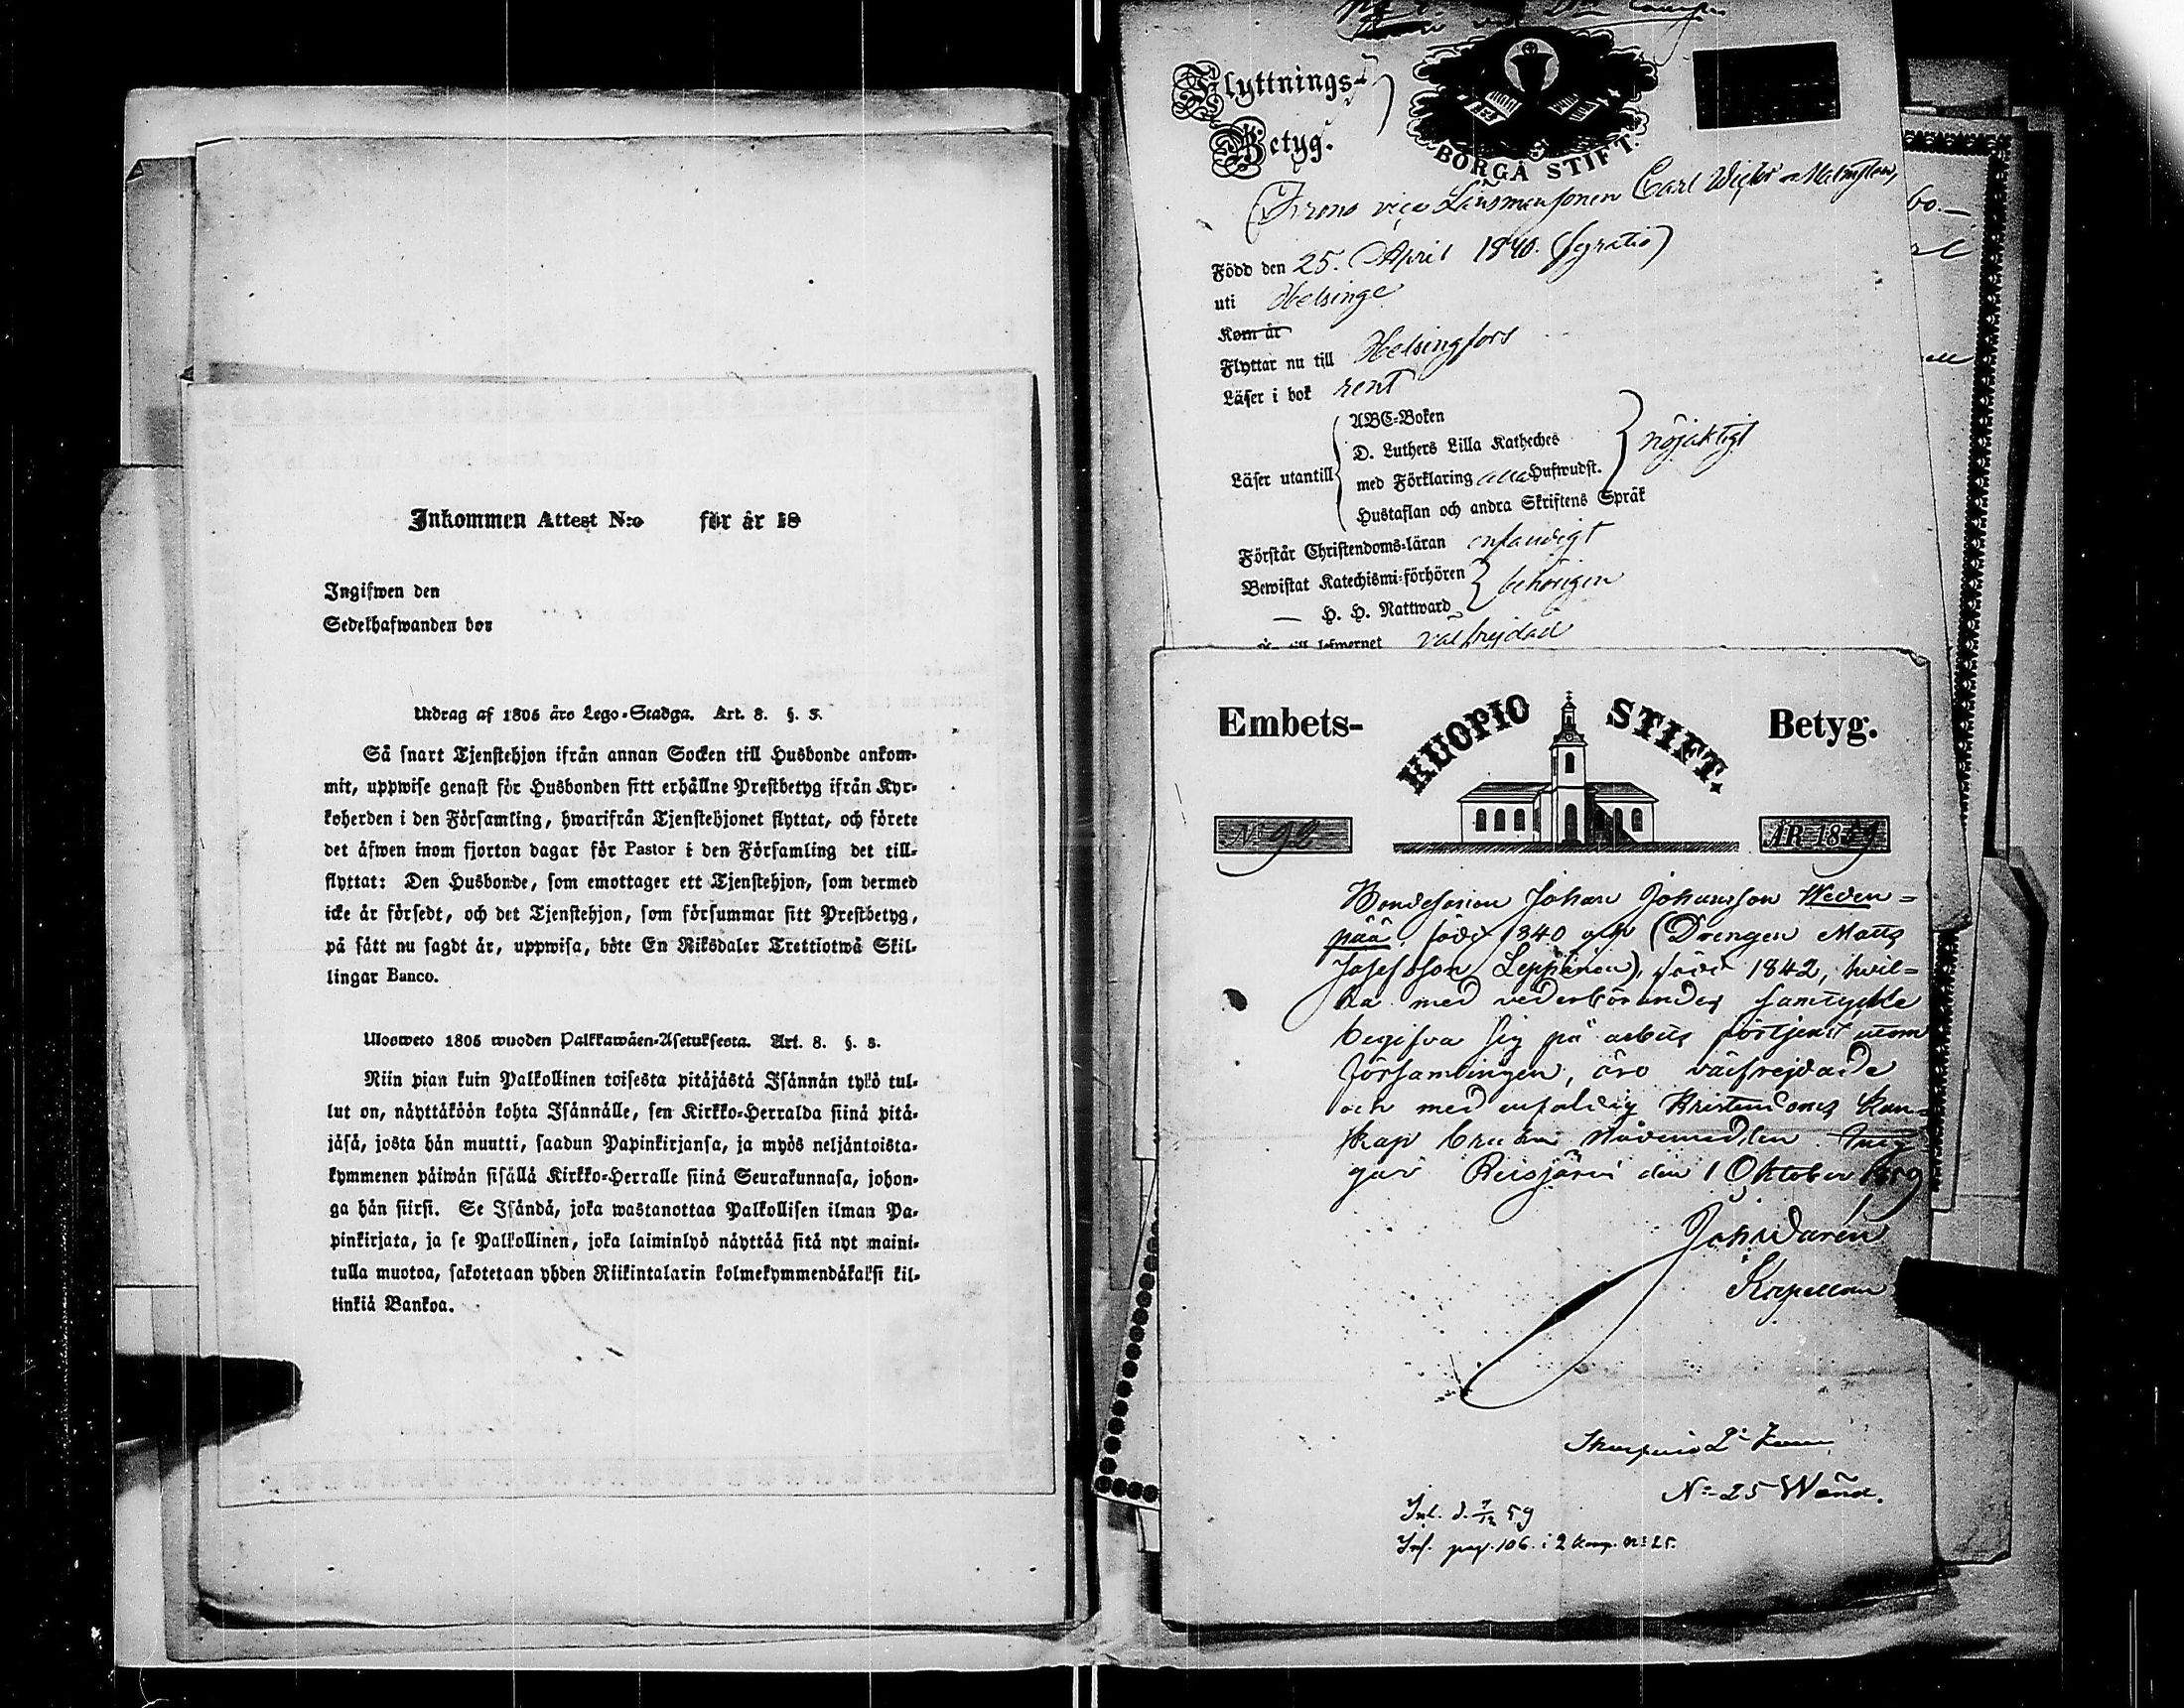 Inkommen Attest N:o för år 18
Ingifwen den
Sedelhafwanden bor
Utdrag af 1805 års Lego-Stadga. Art. 8. §. 5.
Så snart Tjenstehjon ifrån annan Socken till Husbonde ankom-
mit, uppwise genast för Husbonden sitt erhållne Prestbetyg ifrån Kyr-
koherden i den Församling, hwarifrån Tjenstehjonet flyttat, och förete
det äfwen inom fjorton dagar för Pastor i den Församling det till-
flyttat: Den Husbonde, som emottager ett Tjenstehjon, som dermed
icke är försedt, och det Tjenstehjon, som försummar sitt Prestbetyg,
på sätt nu sagdt är, uppwisa, böte En Riksdaler Trettiotwå Skil-
lingar Banco.
Ulosweto 1805 wuoden Palkkawäen-Asetuksesta. Art. 8. §. 5.
Niin pian kuin Palkollinen toisesta pitäjästä Isännän tykö tul-
lut on, näyttäköön kohta Isännälle, sen Kirkko-Herralda siinä pitä-
jäsä, josta hän muutti, saadun Papinkirjansa, ja myös neljäntoista-
kymmenen päiwän sisällä Kirkko-Herralle siinä Seurakunnasa, johon-
ga hän siirsi. Se Isändä, joka wastanottaa Palkollisen ilman Pa-
pinkirjata, ja se Palkollinen, joka laiminlyö näyttää sitä nyt maini-
tulla muotoa, sakotetaan yhden Riikintalarin kolmekymmendäkaksi kil-
linkiä Bankoa.
Flyttnings-
Betyg.
BORGÅ STIFT.
Krono vice Länsmansonen Carl
Född den 25. April 1840. (gratis)
uti Helsinge
Kom år
Flyttar nu till Helsingfors
Läser i bok rent
ABC-Boken
D. Luthers Lilla Katheches
Läser utantill med Förklaring alla Hufwudst. nöjaktigt
Hustaflan och andra Skriftens Språk
Förstår Christendoms-läran enfaldigt
Bewistat Katechismi-förhören behörigen
— H. H. Nattward
till lefwernet välfrejdad
Embets- KUOPIO STIFT. Betyg.
No 92 ÅR 1859
Bondesonen Johan Johansson Weden=
pää, född 1840 och (Drengen Matts
Josefsson Leppänen), född 1842, hvil=
ka med vederbörandes samtycke
begifva sig på arbets förtjenst utom
Församlingen, äro välfrejdade
och med enfaldig Kristendoms kun=
skap bruka Nådemedlen. Intyg
gar Reisjärvi den 1 Oktober 1859
Joh. Warén
Kapellan
2:
N:o 25
Inl. d. 7/12 59
Inf. pag. 106. i 2 komp. No 25.